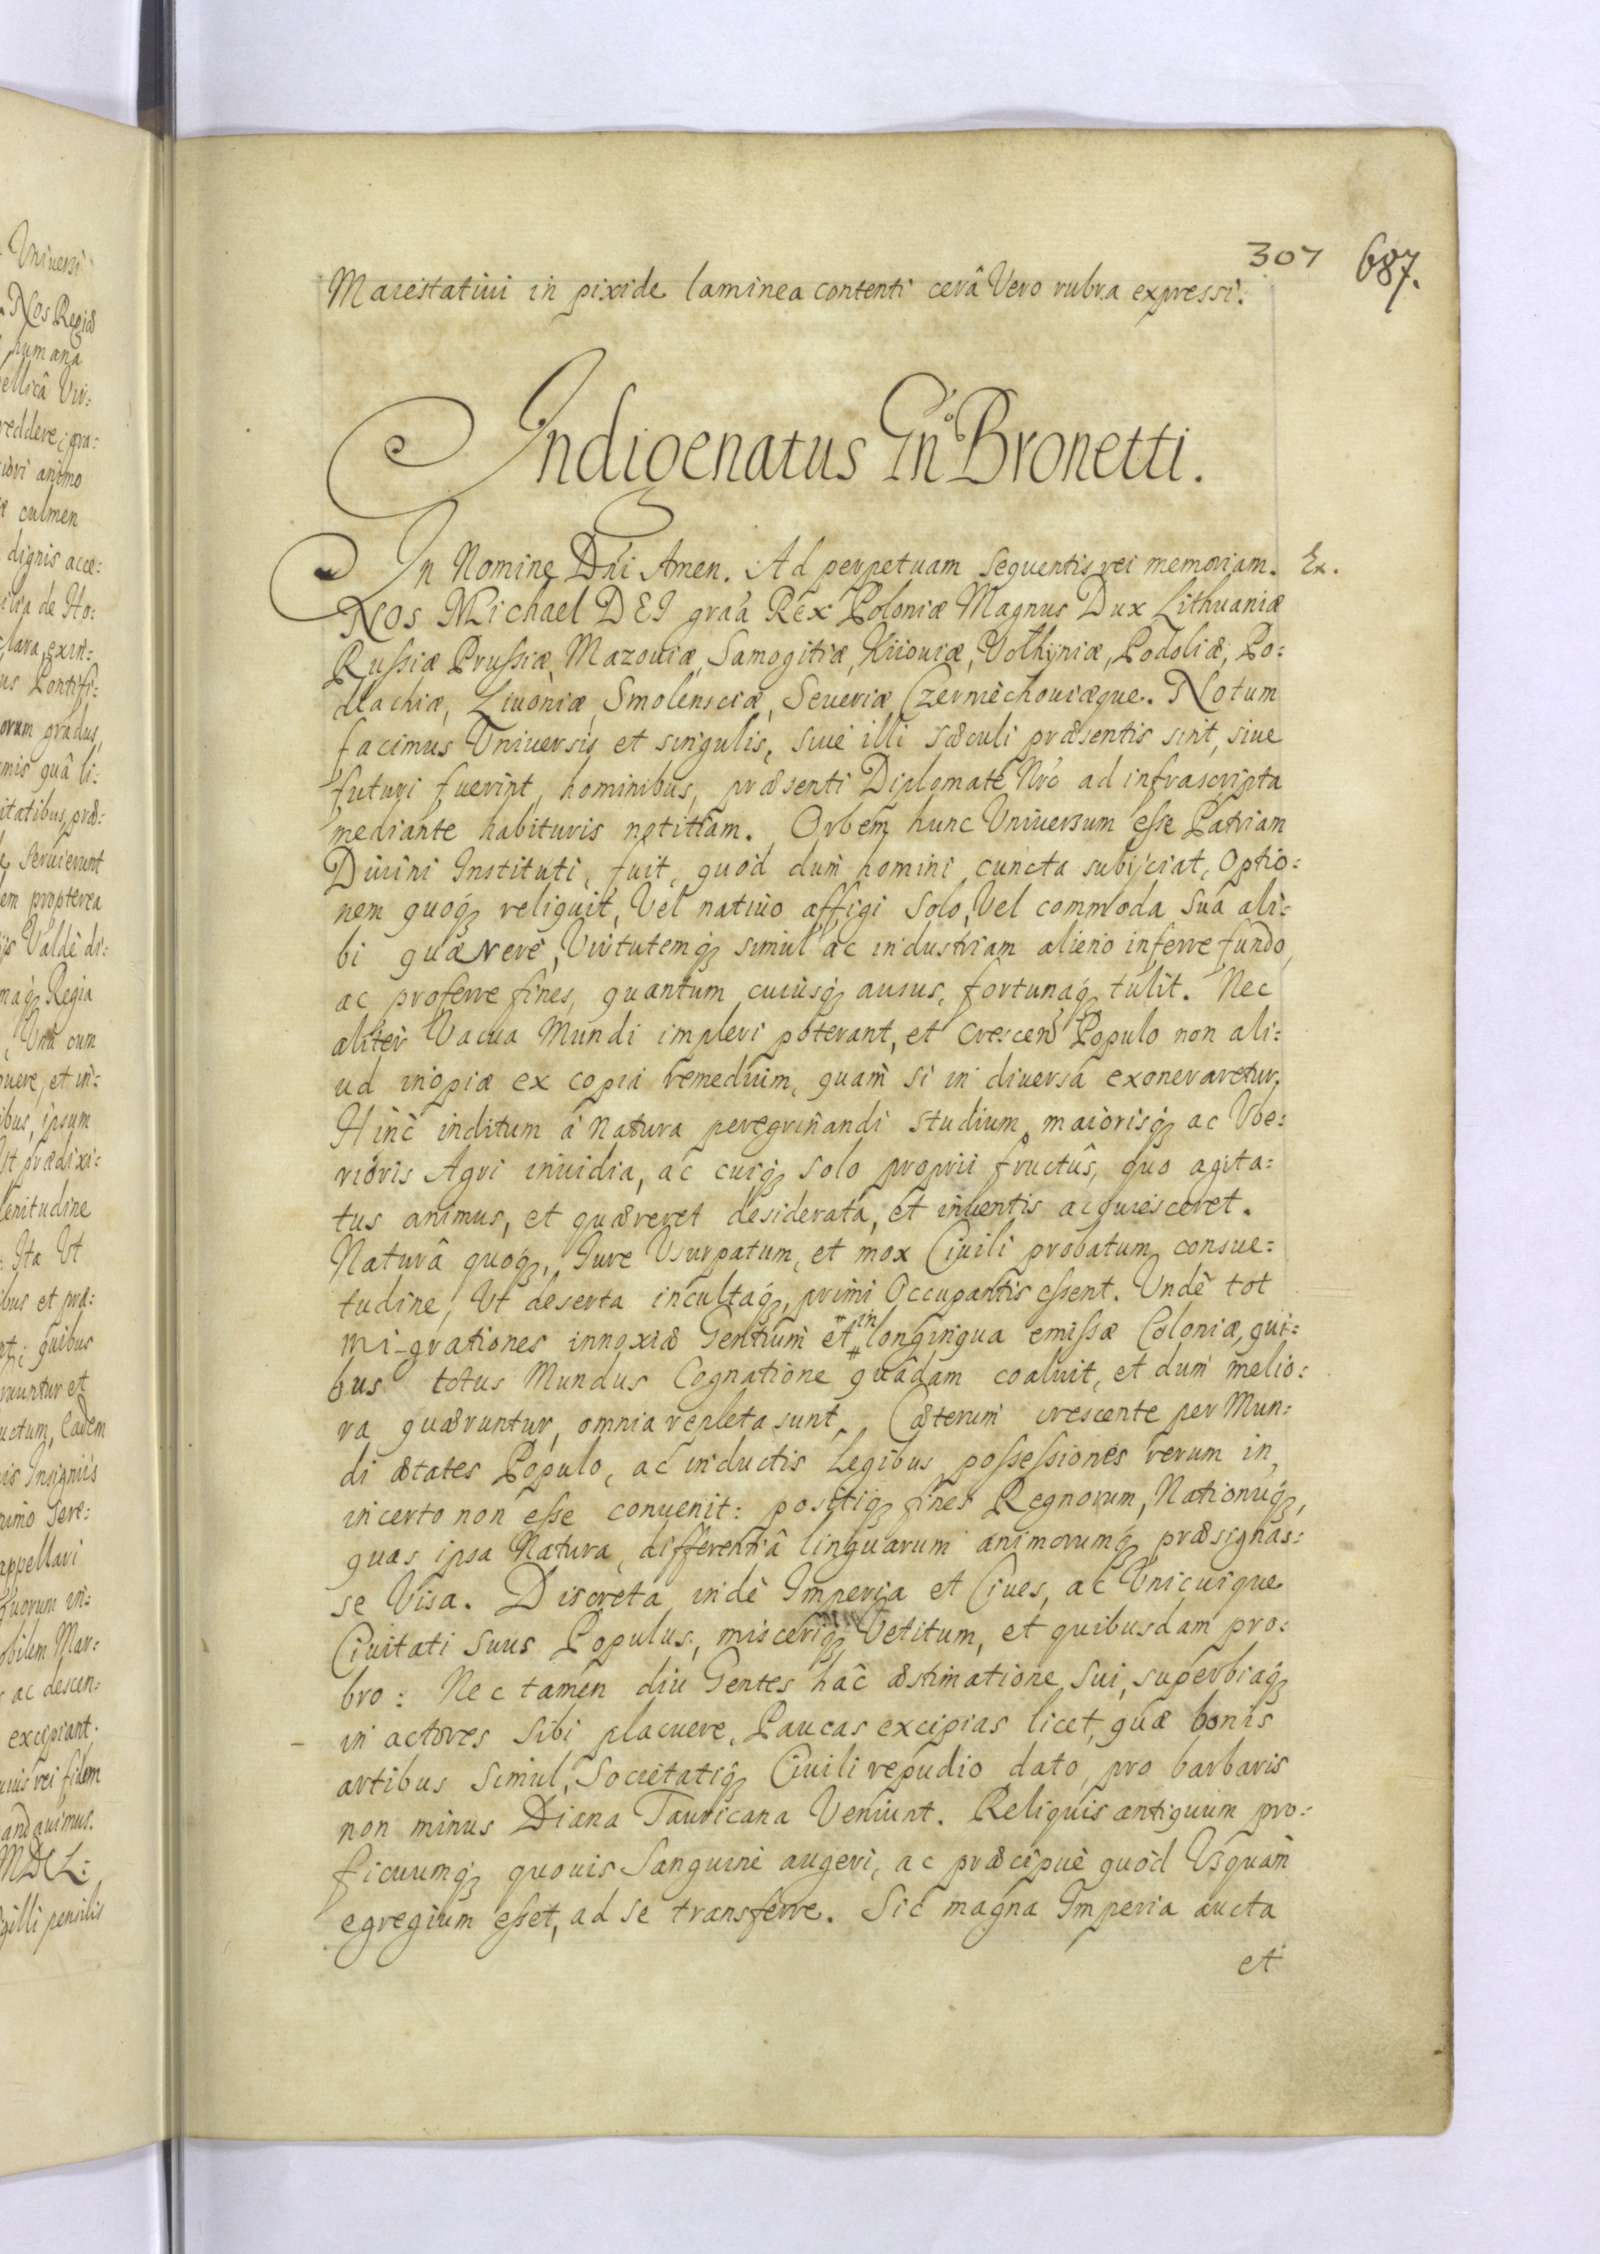 307 687.
Maiestativi in pixide laminea contenti cerâ Vero rubra expressi.
Indigenatus Gn̄o Bronetti.
In Nomine Dn̄i Amen. Ad perpetuam sequentis rei memoriam. Ex.
Nos Michael DEI gra͞a Rex Poloniæ Magnus Dux Lithuaniæ
Russiæ Prussiæ, Mazouiæ, Samogitiæ, Kiiouiæ, Volhyniæ, Podoliæ, Po:
dlachiæ, Liuoniæ, Smolensciæ, Seueriæ Czerniechouiæque. Notum
facimus Vniuersis et singulis, siue illi sæculi præsentis sint, siue
futuri fuerint, hominibus, præsenti Diplomate Nr̄o ad infrascripta
mediante habituris notitiam. Orbem hunc Vniuersum esse Patriam
Diuini Instituti, fuit, quod dum homini cuncta subijciat, Optio:
nem quoq̨ reliquit, Vel natiuo affigi Solo, Vel commoda sua ali:
bi quærere, Virtutemq̨ simul ac industriam alieno inferre fundo,
ac proferre fines, quantum cuiusq̨ ausus, fortunaq̨ tulit. Nec
aliter Vacua Mundi impleri poterant, et Crescen̄ Populo non ali:
ud inopiæ ex copia remedium, quam̀ si in diuersa exoneraretur.
Hinc inditum á Natura peregrinandi studium, maiorisq̨ ac Vbe:
rioris Agri inuidia, ac cuiq̨ solo proprii fructûs, quo agita:
tus animus, et quæreret desiderata, et inuentis acquiesceret.
Naturâ quoq̨, Iure Vsurpatum, et mox Ciuili probatum consue:
tudine, Vt deserta incultaq̨, primi Occupantis essent. Vndè tot
mi-grationes innoxiæ Gentium et in longinqua emissæ Coloniæ, qui:
bus totus Mundus Cognatione quâdam coaluit, et dum melio:
ra quæruntur, omnia repleta sunt. Cæterum crescente per Mun:
di ætates Populo, ac inductis Legibus possessiones rerum in
incerto non esse conuenit: positiq̨ fines Regnorum, Nationuq̨,
quas ipsa Natura, differentiâ linguarum animorumq̨ præsignas:
se Visa. Discreta indè Imperia et Ciues, ac Vnicuique
Ciuitati suus Populus, misceriq̨ Vetitum, et quibusdam pro:
bro: Nec tamen diu Gentes hâc æstimatione sui, superbiaq̨
in actores sibi placuere, Paucas excipias licet, quæ bonis
artibus simul, Societatiq̨ Ciuili repudio dato, pro barbaris
non minus Diana Tauricana Veniunt. Reliquis antiquum pro:
ficuumq̨ quouis Sanguine augeri, ac præcipuè quòd Vsquàm
egregium esset, ad se transferre. Sic magna Imperia aucta
et